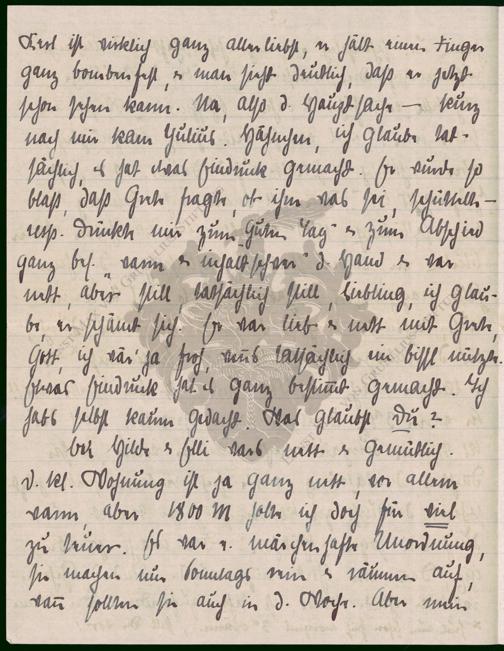 Kerl ist wirklich ganz allerliebst, er hält einen Finger
ganz bombenfest, & man sieht deutlich, daß er jetzt
schon sehen kann. Na, also d. Hauptsache – kurz
nach mir kam Julius. Hähnchen, ich glaube tat-
sächlich, es hat etwas Eindruck gemacht. Er wurde so
blaß, daß Grete fragte, ob ihm was sei, schüttelte –
resp. drückte mir zum „Guten Tag“ & zum Abschied
ganz bes. „warm & inhaltschwer“ d. Hand & war
nett, aber still tatsächlich still, Liebling, ich glau-
be er schämt sich. Er war lieb & nett mit Grete,
Gott, ich wär' ja froh, wenns tatsächlich ein bissl nützte.
Etwas Eindruck hat es ganz bestimmt gemacht. Ich
habs selbst kaum gedacht. Was glaubst Du?
Bei Hilde & Elli wars nett & gemütlich.
D. kl. Wohnung ist ja ganz nett, vor allem
warm, aber 1800 M hielte ich doch für viel
zu teuer. Es war e. märchenhafte Unordnung,
sie machen nur Sonntags rein & räumen auf,
wann sollten sie auch in d. Woche. Aber mein